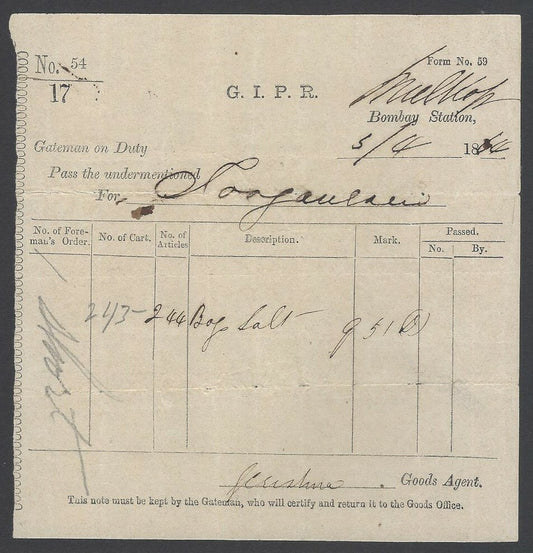 No. 54
17
Form No. 59
G. I. P. R.
Bombay Station,
5/4 1864
Gateman on Duty
Pass the undermentioned
For
No. of Fore-
man's Order.
No. of Cart.
No. of
Articles
Description.
Mark.
Passed.
No.
By.
243 - 244 Bags Salt 951 D
Goods Agent.
This note must be kept by the Gateman, who will certify and return it to the Goods Office.